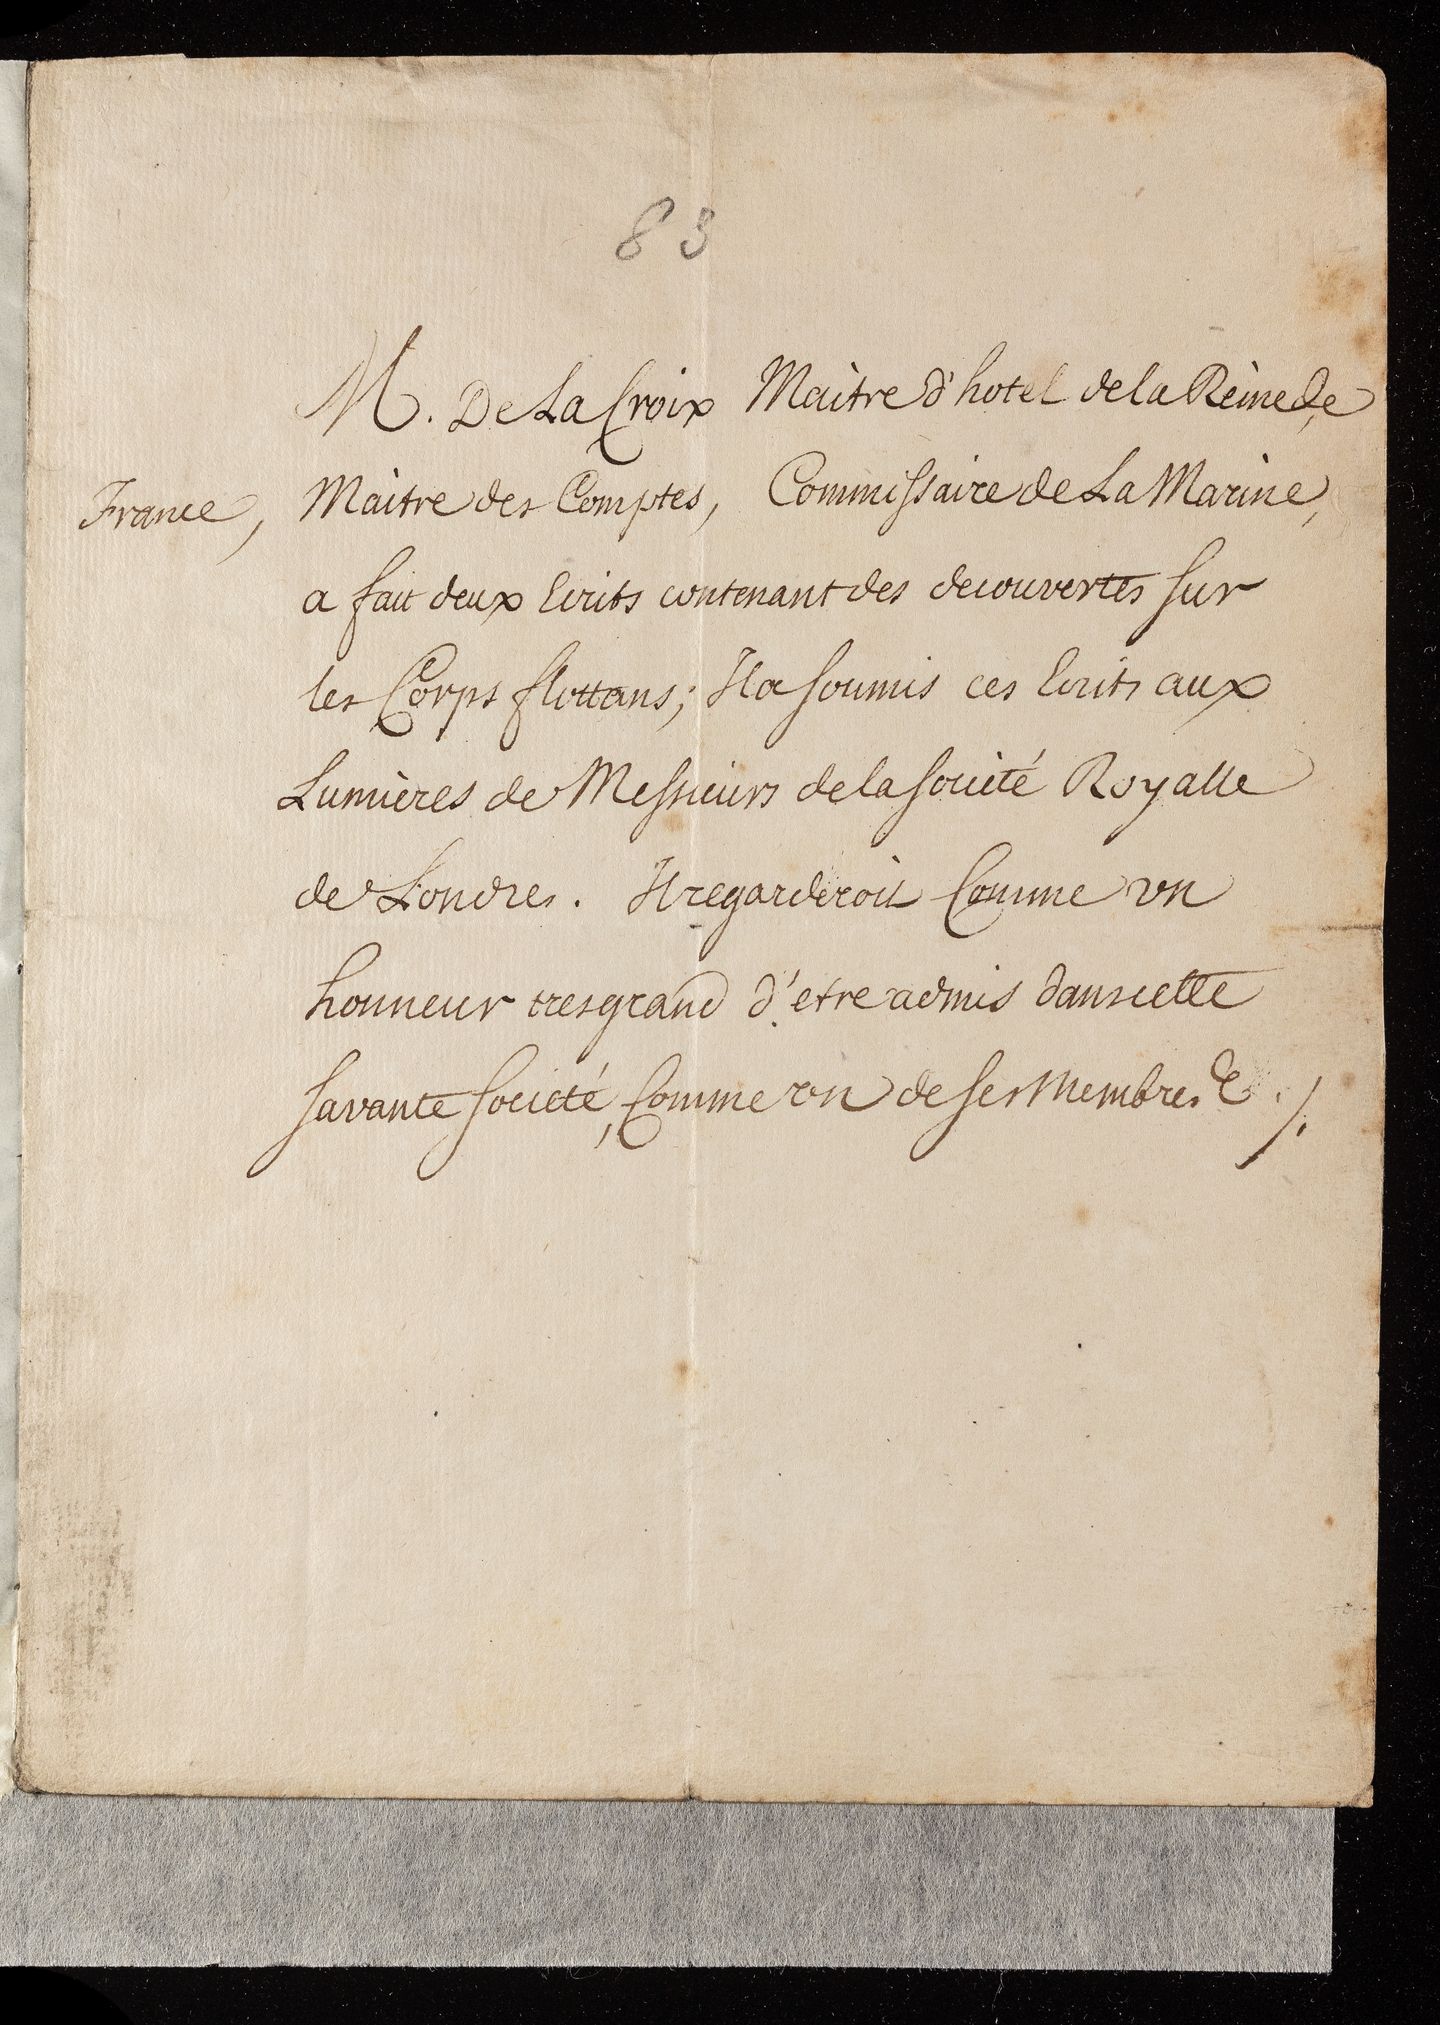 83
M. De La Croix Maitre d'hotel de la Reine de
France, Maitre des Comptes, Commissaire de La Marine,
a fait deux Ecrits contenant des decouvertes sur
les Corps flottans; Il a soumis ces Ecrits aux
Lumières de Messieurs de la societé Royalle
de Londres. Il regarderoit Comme vn
honneur tres grand d'etre admis dans cette
savante societé, Comme vn de ses Membres &c ./.